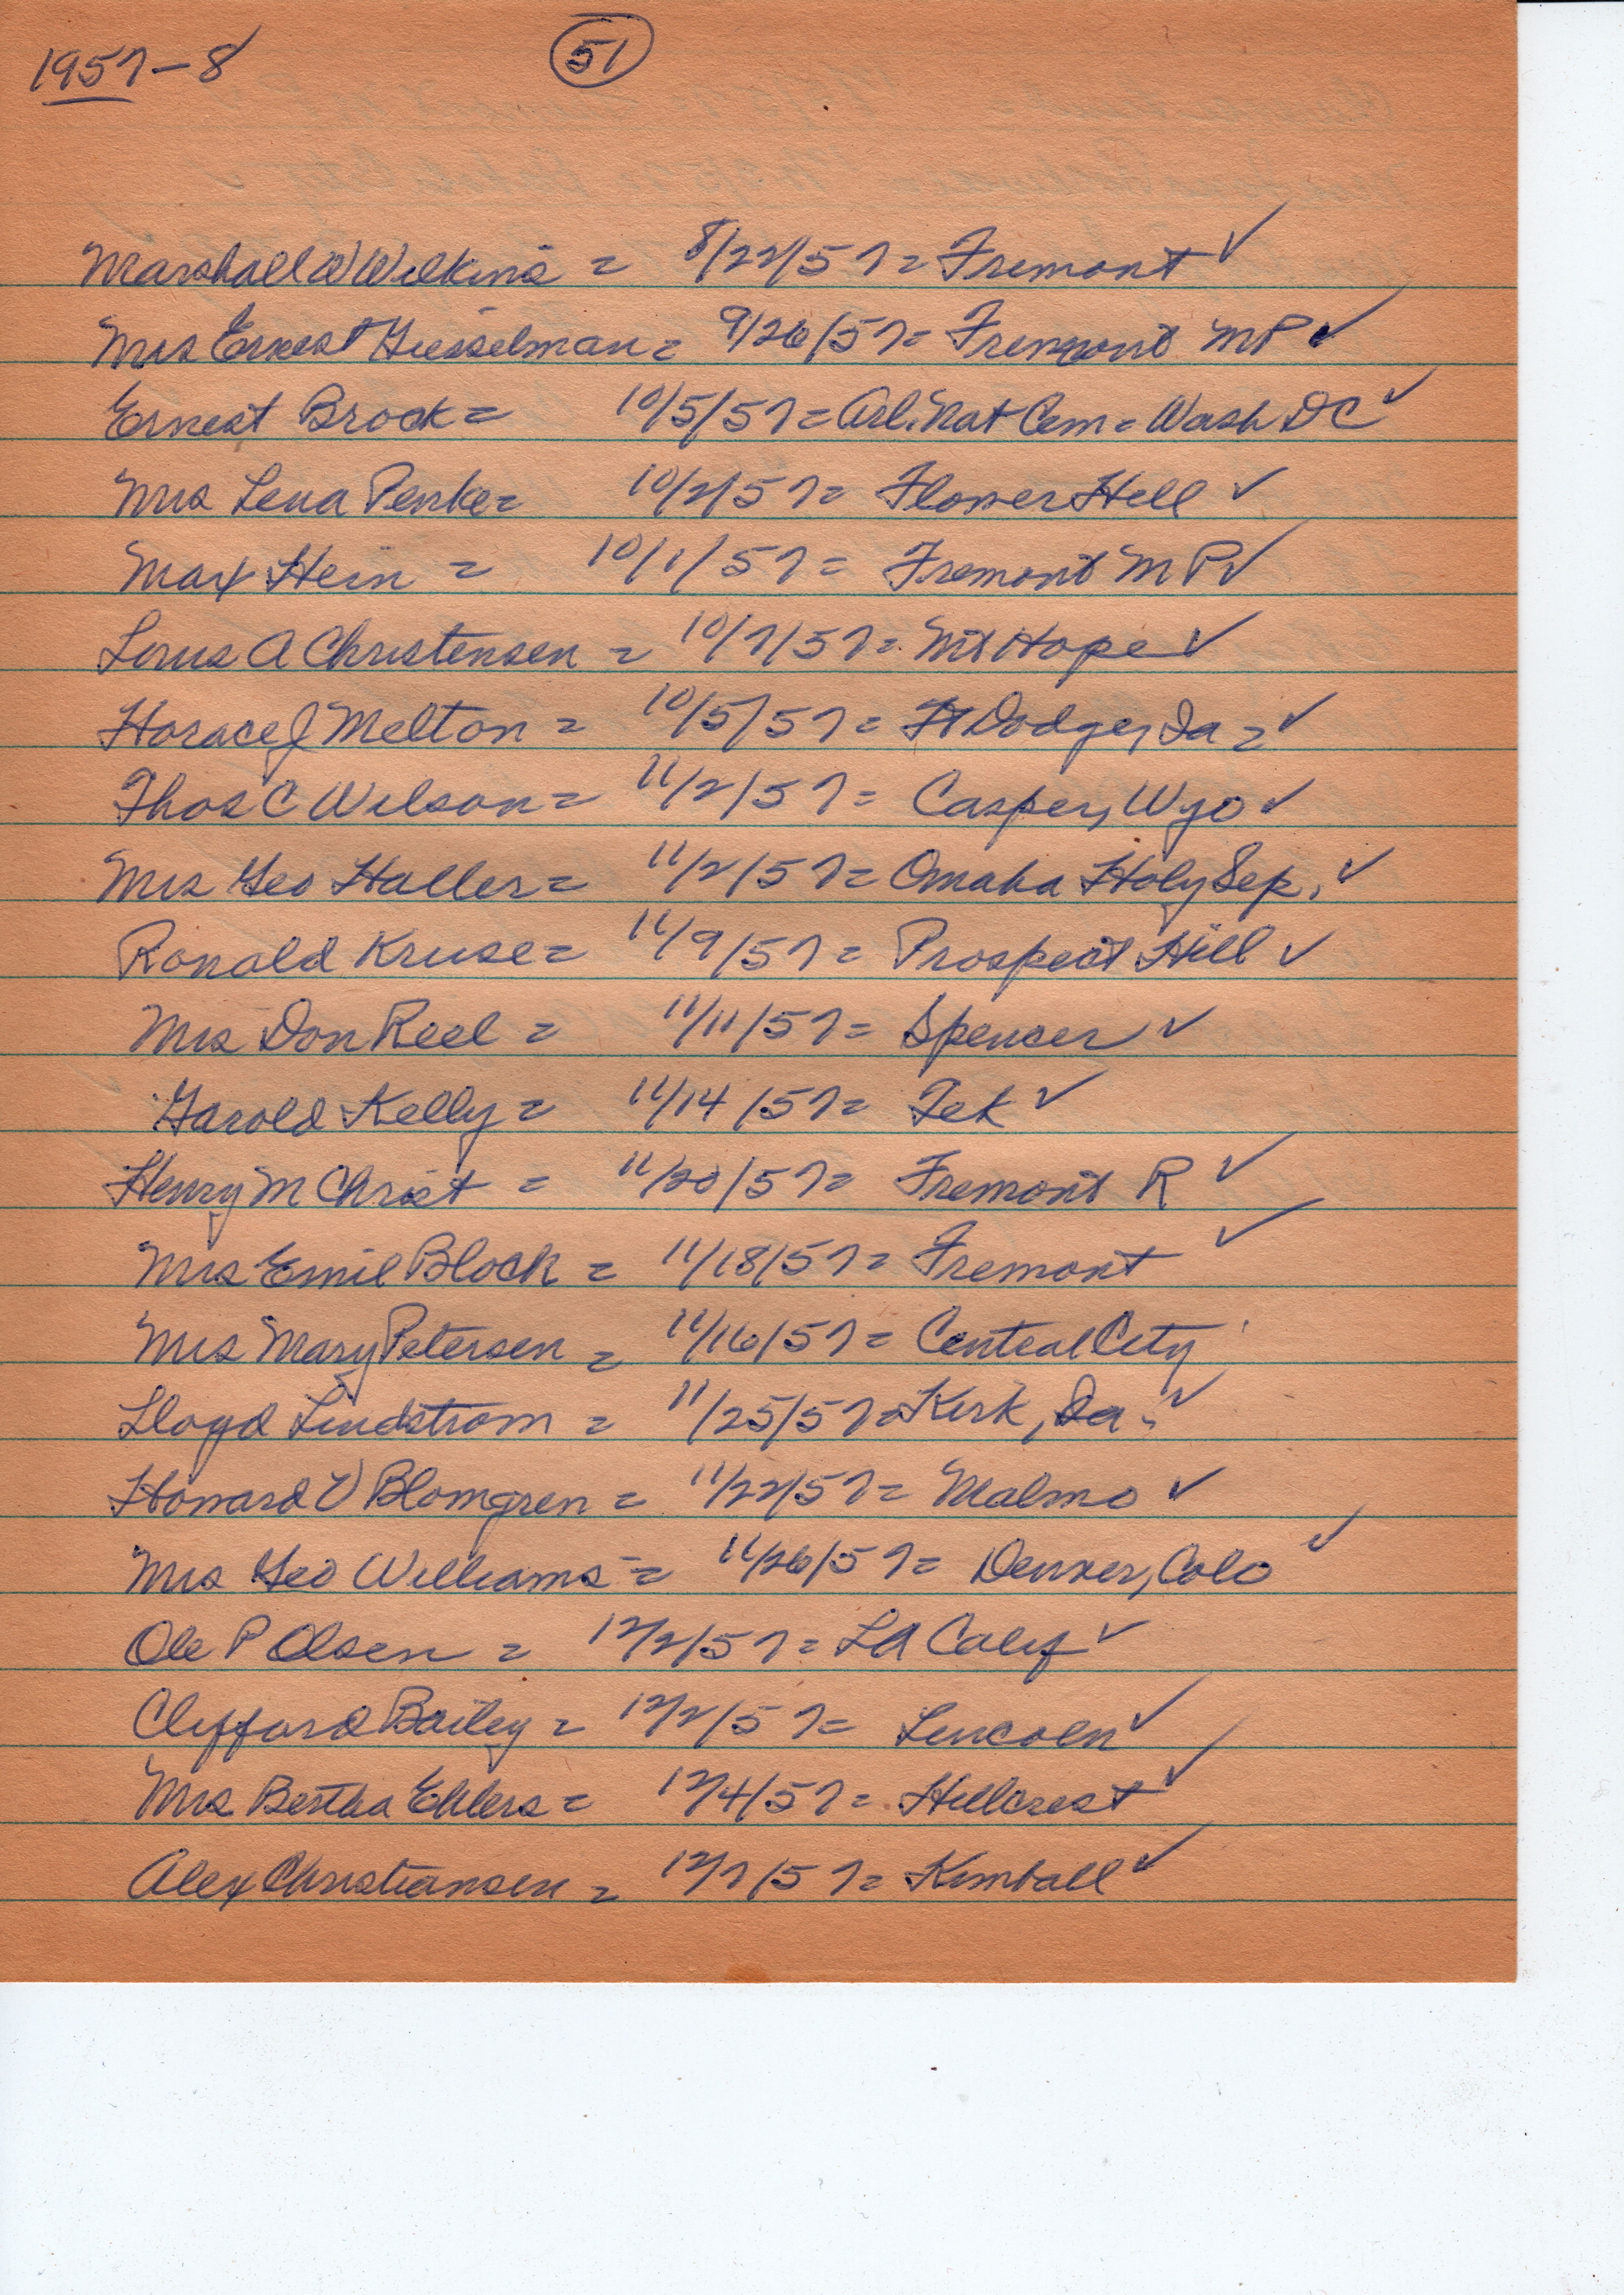 1957-8 ✓ 51
Marshall W Wilkins = 8/22/57 = Fremont ✓
Mrs Ernest Giesselman = 9/26/57 = Fremont MP ✓
Ernest Brock = 10/5/57 = Arl. Nat Cem = Wash DC ✓
Mrs Lena Penke = 10/2/57 = Flower Hill ✓
Max Hein = 10/1/57 = Fremont MP ✓
Louis A Christensen = 10/7/57 = Mt Hope ✓
Horace J Melton = 10/5/57 = Ft Dodge, Ia = ✓
Thos C Wilson = 11/2/57 = Casper, Wyo ✓
Mrs Geo Haller = 11/2/57 = Omaha Holy Sep. ✓
Ronald Kruse = 11/9/57 = Prospect Hill ✓
Mrs Don Reel = 11/11/57 = Spencer ✓
Garold Kelly = 11/14/57 = Tek ✓
Henry M Christ = 11/20/57 = Fremont R ✓
Mrs Emil Block = 11/18/57 = Fremont ✓
Mrs Mary Petersen = 11/16/57 = Central City
Lloyd Lindstrom = 11/25/57 = Kirk, Ia. ✓
Howard V Blomgren = 11/22/57 = Malmo ✓
Mrs Geo Williams = 11/26/57 = Denver, Colo ✓
Ole P Olsen = 12/2/57 = LA Calif ✓
Clifford Bailey = 12/2/57 = Lincoln ✓
Mrs Bertha Ehlers = 12/4/57 = Hillcrest ✓
Alex Christiansen = 12/7/57 = Kimball ✓